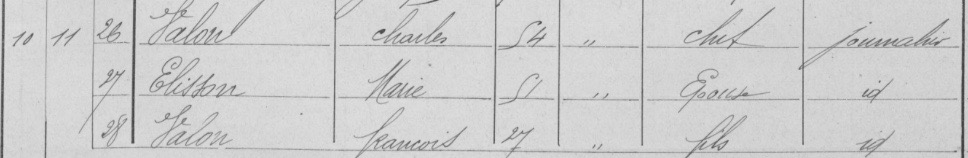 10 11 26 Valon Charles 54 " chef journalier
27 Elisson Marie 51 " Epouse id
28 Valon françois 27 " fils id